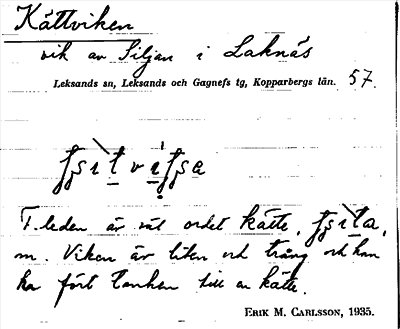 Kättviken
vik av Siljan i Laknäs
Leksands sn, Leksands och Gagnefs tg, Kopparbergs län. 57.
F. leden är väl ordet kätte,
m. Viken är liten och trång och kan
ha fört tanken till en kätte.
ERIK M. CARLSSON, 1935.